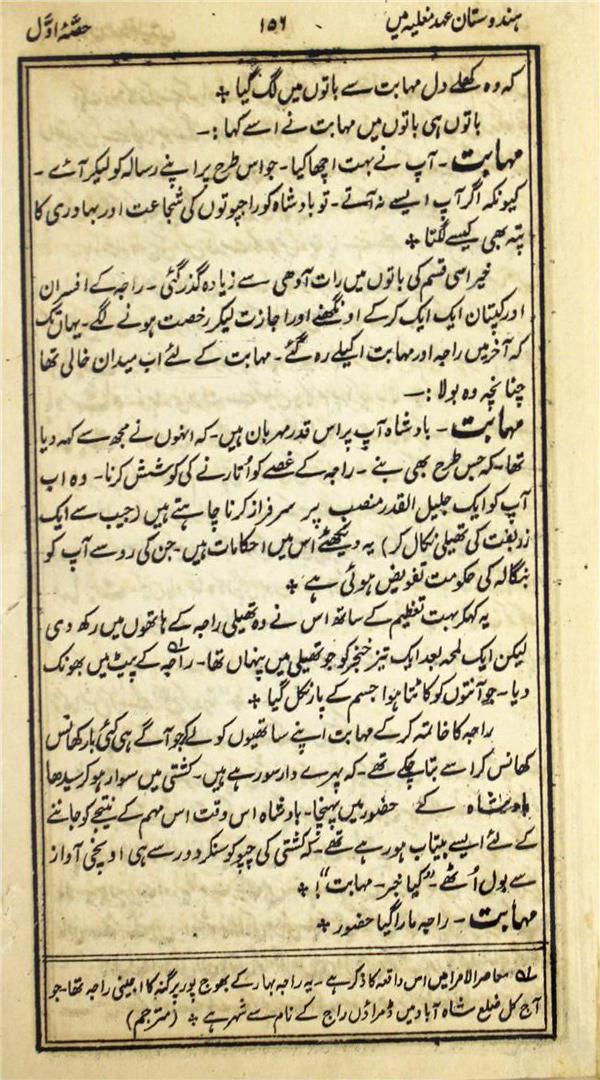 ہندوستان عہد مغلیہ میں ۱۵۶ حصّہ اوّل
کہ وہ کھلے دل مہابت سے باتوں میں لگ گیا ٭
باتوں ہی باتوں میں مہابت نے اسے کہا :۔
مہابت ۔ آپ نے بہت اچھا کیا ۔ جو اس طرح پر اپنے رسالہ کو لیکر آئے ۔
کیونکہ اگر آپ ایسے نہ آتے ۔ تو بادشاہ کو راجپوتوں کی شجاعت اور بہادری کا
پتہ بھی کیسے لگتا ٭
خیر اسی قسم کی باتوں میں رات آدھی سے زیادہ گذر گئی ۔ راجہ کے افسران
اور کپتان ایک ایک کر کے اونگھنے اور اجازت لیکر رخصت ہونے لگے ۔ یہاں تک
کہ آخر میں راجہ اور مہابت اکیلے رہ گئے ۔ مہابت کے لئے اب میدان خالی تھا
چنانچہ وہ بولا :۔
مہابت ۔ بادشاہ آپ پر اس قدر مہربان ہیں ۔ کہ انہوں نے مجھ سے کہہ دیا
تھا ۔ کہ جس طرح بھی بنے ۔ راجہ کے غصے کو اُتارنے کی کوشش کرنا ۔ وہ اب
آپ کو ایک جلیل القدر منصب پر سرفراز کرنا چاہتے ہیں (جیب سے ایک
زربفت کی تھیلی نکال کر) یہ دیکھئے اس میں احکامات ہیں ۔ جن کی رو سے آپ کو
بنگالہ کی حکومت تفویض ہوئی ہے ٭
یہ کہکر بہت تعظیم کے ساتھ اس نے وہ تھیلی راجہ کے ہاتھوں میں رکھ دی
لیکن ایک لمحہ بعد ایک تیز خنجر کو جو تھیلی میں پنہاں تھا ۔ راجہ ؎۱ کے پیٹ میں بھونک
دیا ۔ جو آنتوں کو کاٹتا ہوا جسم کے پار نکل گیا ٭
راجہ کا خاتمہ کر کے مہابت اپنے ساتھیوں کو لے کر جو آگے ہی کئی بار کھانس
کھانس کر اسے بتا چکے تھے ۔ کہ پہرے دار سو رہے ہیں ۔ کشتی میں سوار ہو کر سیدھا
بادشاہ کے حضور میں پہنچا ۔ بادشاہ اس وقت اس مہم کے نتیجے کو جاننے
کے لئے ایسے بیتاب ہو رہے تھے ۔ کہ کشتی کی چپو کو سنکر دور سے ہی اونچی آواز
سے بول اُٹھے ۔ "کیا خبر ۔ مہابت"! ٭
مہابت ۔ راجہ مارا گیا حضور ٭
؎۱ معاصر الامرا میں اس واقعہ کا ذکر ہے ۔ یہ راجہ بہار کے بھوج پور پرگنہ کا اجینی راجہ تھا ۔ جو
آج کل ضلع شاہ آباد میں ڈمراؤں راج کے نام سے شہر ہے ٭ (مترجم)